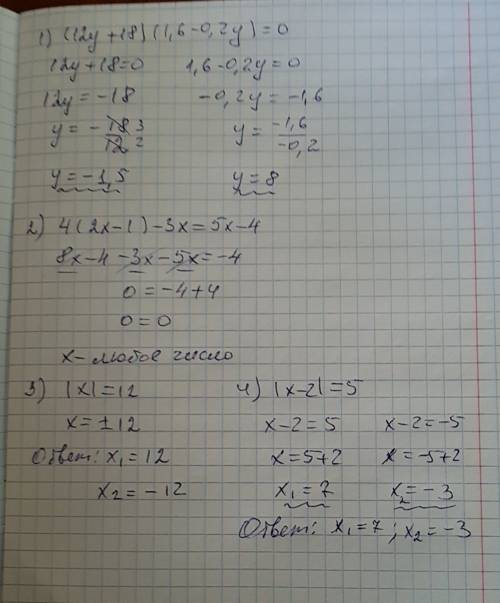 1) (12y+18)(1,6-0,2y)=0
12y+18=0 1,6-0,2y=0
12y=-18 -0,2y=-1,6
y=-18 3/12 2 y=-1,6/-0,2
y=-1,5 y=8
2) 4(2x-1)-3x=5x-4
8x-4-3x-5x=-4
0=-4+4
0=0
x-любое число
3) |x|=12 4) |x-2|=5
x=±12 x-2=5 x-2=-5
Ответ: x₁=12 x=5+2 x=-5+2
x₂=-12 x₁=7 x₂=-3
Ответ: x₁=7; x₂=-3